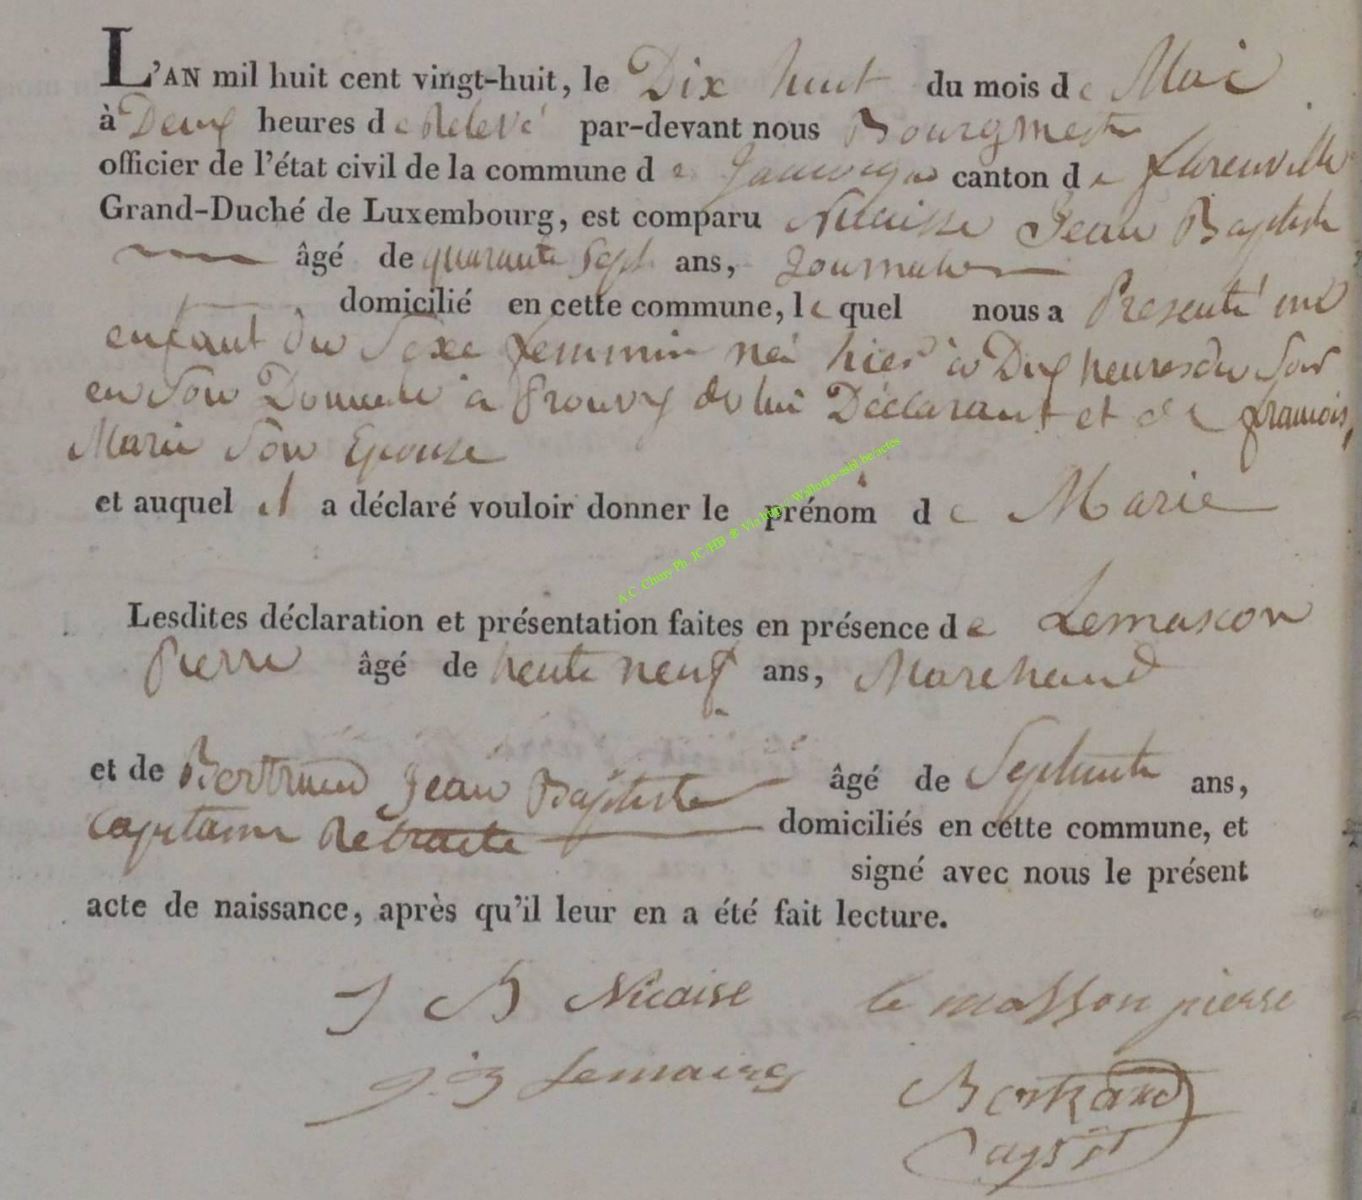 L'AN mil huit cent vingt-huit, le Dix huit du mois de Mai
à Deux heures de Relevé par-devant nous Bourgmestre
officier de l'état civil de la commune de Jamoigne canton de Florenville
Grand-Duché de Luxembourg, est comparu Nicaisse Jean Baptiste
âgé de quarante Sept ans, Journalier
domicilié en cette commune, lequel nous a Presenté un
enfant du Sexe femmin né hier à Dix heures du Soir
en Son Domicile à Prouvy de lui Déclarant et de francois,
Marie Son Epouse
et auquel il a déclaré vouloir donner le prénom de Marie
Lesdites déclaration et présentation faites en présence de Lemasson
Pierre âgé de trente neuf ans, Marchand
et de Bertrand Jean Baptiste âgé de Septante ans,
Capitaine Retraite domiciliés en cette commune, et
signé avec nous le présent
acte de naissance, après qu'il leur en a été fait lecture.
J B Nicaise le masson pierre
Lemaire Bertrand
A.C. Chiny Ph. JC-HB ® Via http://Wallonia-asbl.be/actes